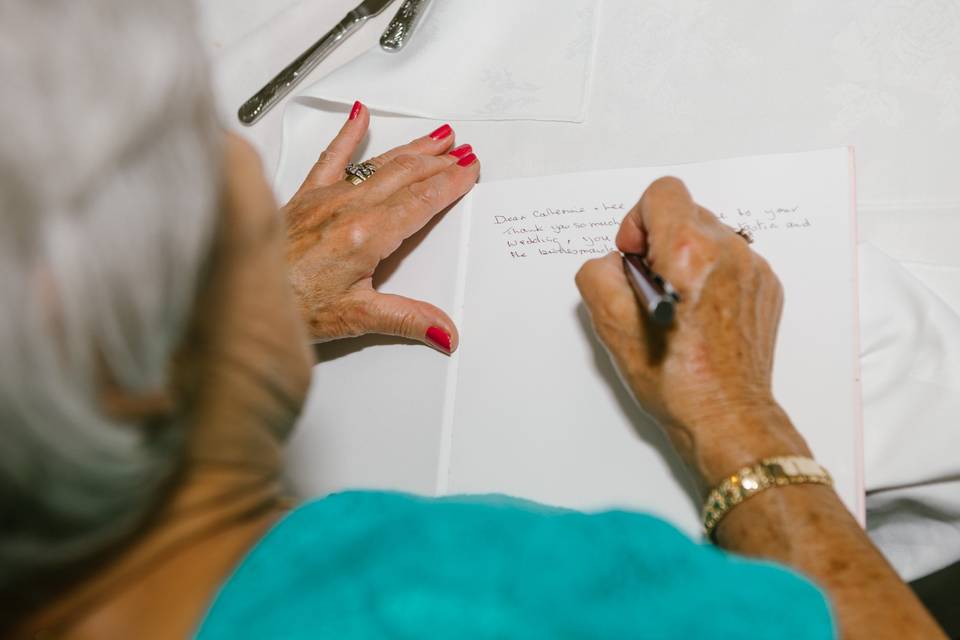 Dear Catherine + Lee
Thank you so much to your
Wedding, you and
the bridesmaids